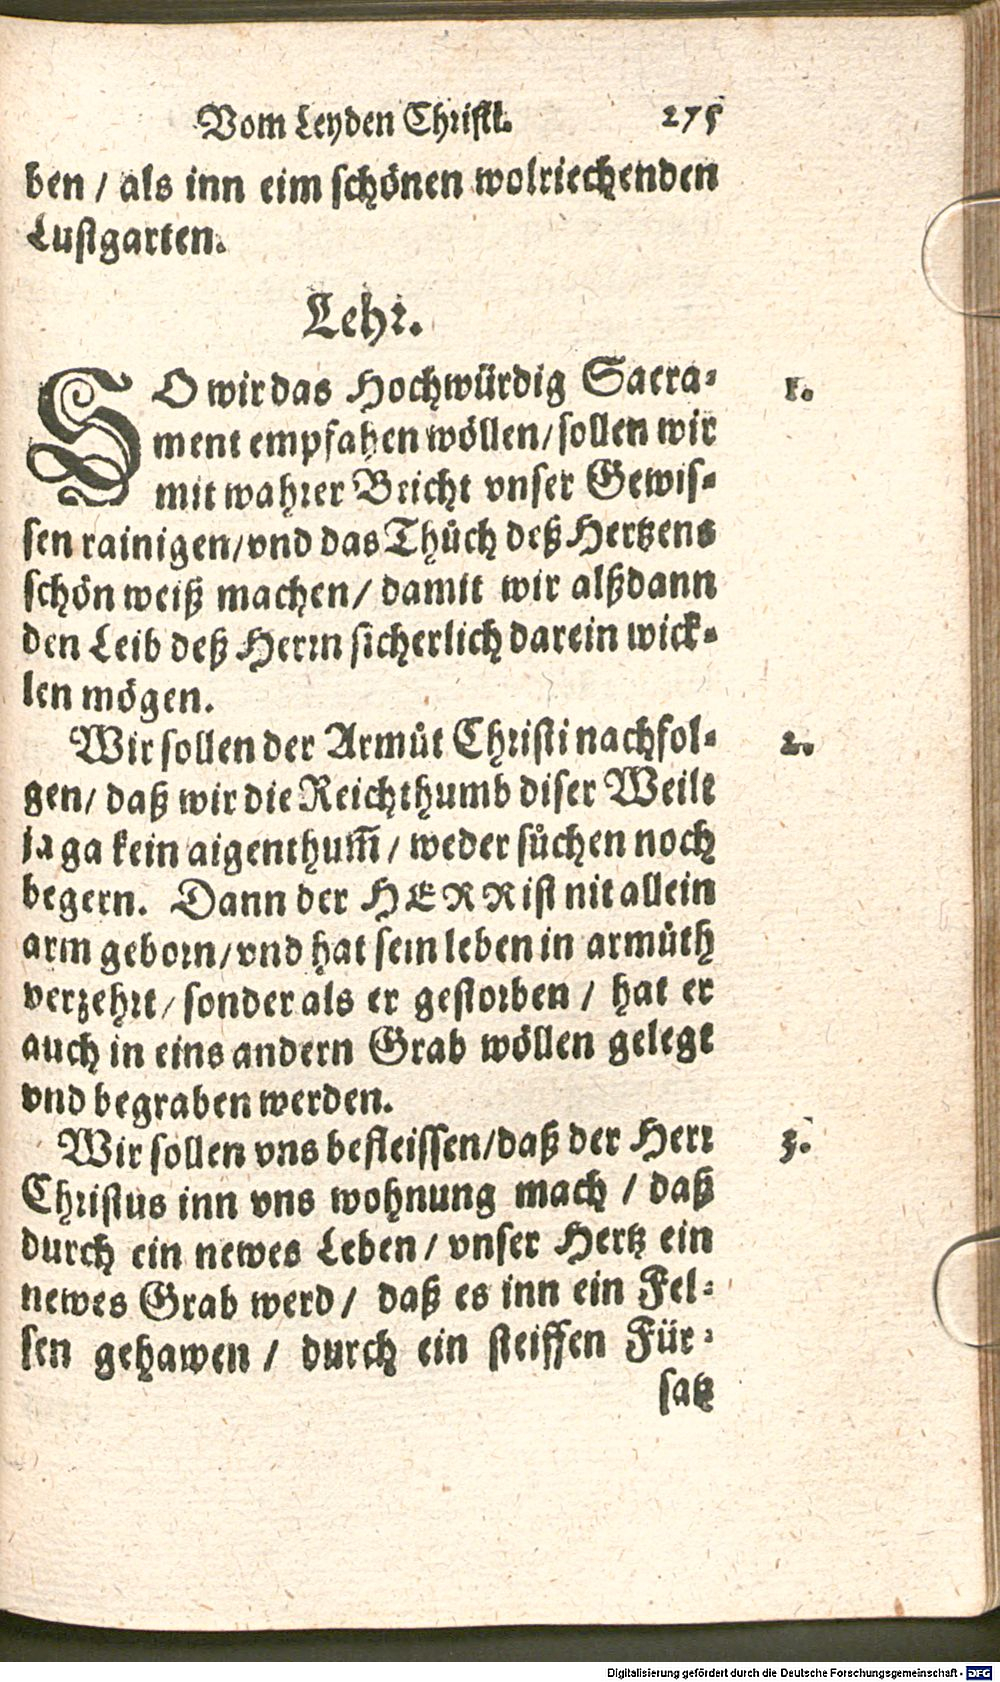 Vom Leyden Christi. 275
ben / als inn eim schönen wolriechenden
Lustgarten.
Lehr.
SO wir das Hochwürdig Sacra- 1.
ment empfahen wöllen / sollen wir
mit wahrer Beicht vnser Gewis-
sen rainigen / vnd das Thůch deß Hertzens
schön weiß machen / damit wir alßdann
den Leib deß Herrn sicherlich darein wick-
len mögen.
Wir sollen der Armůt Christi nachfol- 2.
gen / daß wir die Reichthumb diser Welt
ja ga kein aigenthum̃ / weder sůchen noch
begern. Dann der HERR ist nit allein
arm geborn / vnd hat sein leben in armůth
verzehrt / sonder als er gestorben / hat er
auch in eins andern Grab wöllen gelegt
vnd begraben werden.
Wir sollen vns befleissen / daß der Herr 3.
Christus inn vns wohnung mach / daß
durch ein newes Leben / vnser Hertz ein
newes Grab werd / daß es inn ein Fel-
sen gehawen / durch ein steiffen Für-
satz
Digitalisierung gefördert durch die Deutsche Forschungsgemeinschaft - DFG